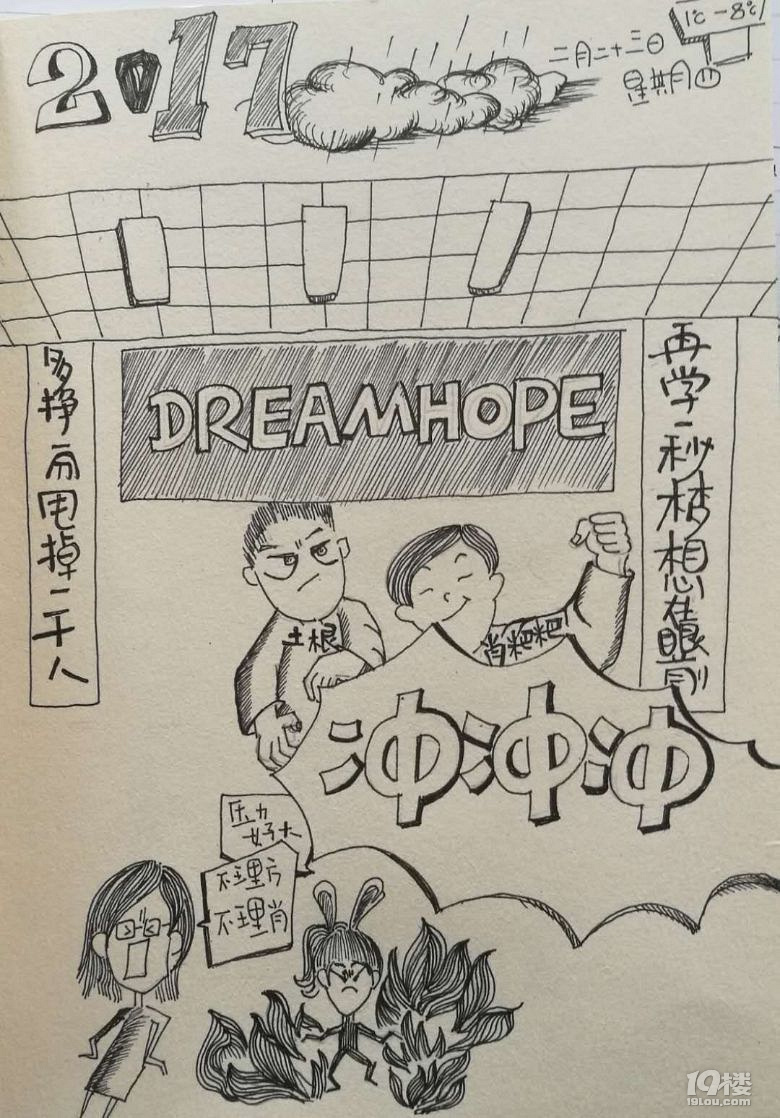 2017
1℃-8℃
二月二十三日
星期四
多挣一分甩掉一千人
DREAMHOPE
再学一秒梦想在眼前
土根
肖粑粑
冲冲冲
压力
好大
不理方
不理肖
19楼
19lou.com